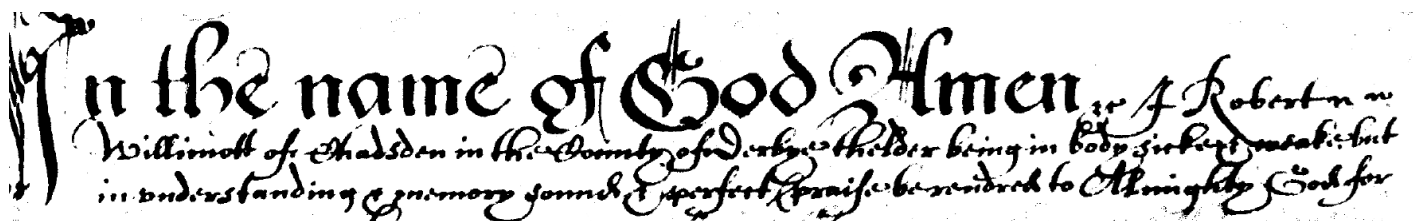 In the name of God Amen I Robert
Willimott of Chadsden in the County of Derbye thelder being in body sicke & weake but
in understanding & memory sounde & perfect praise be rendred to Almighty God for